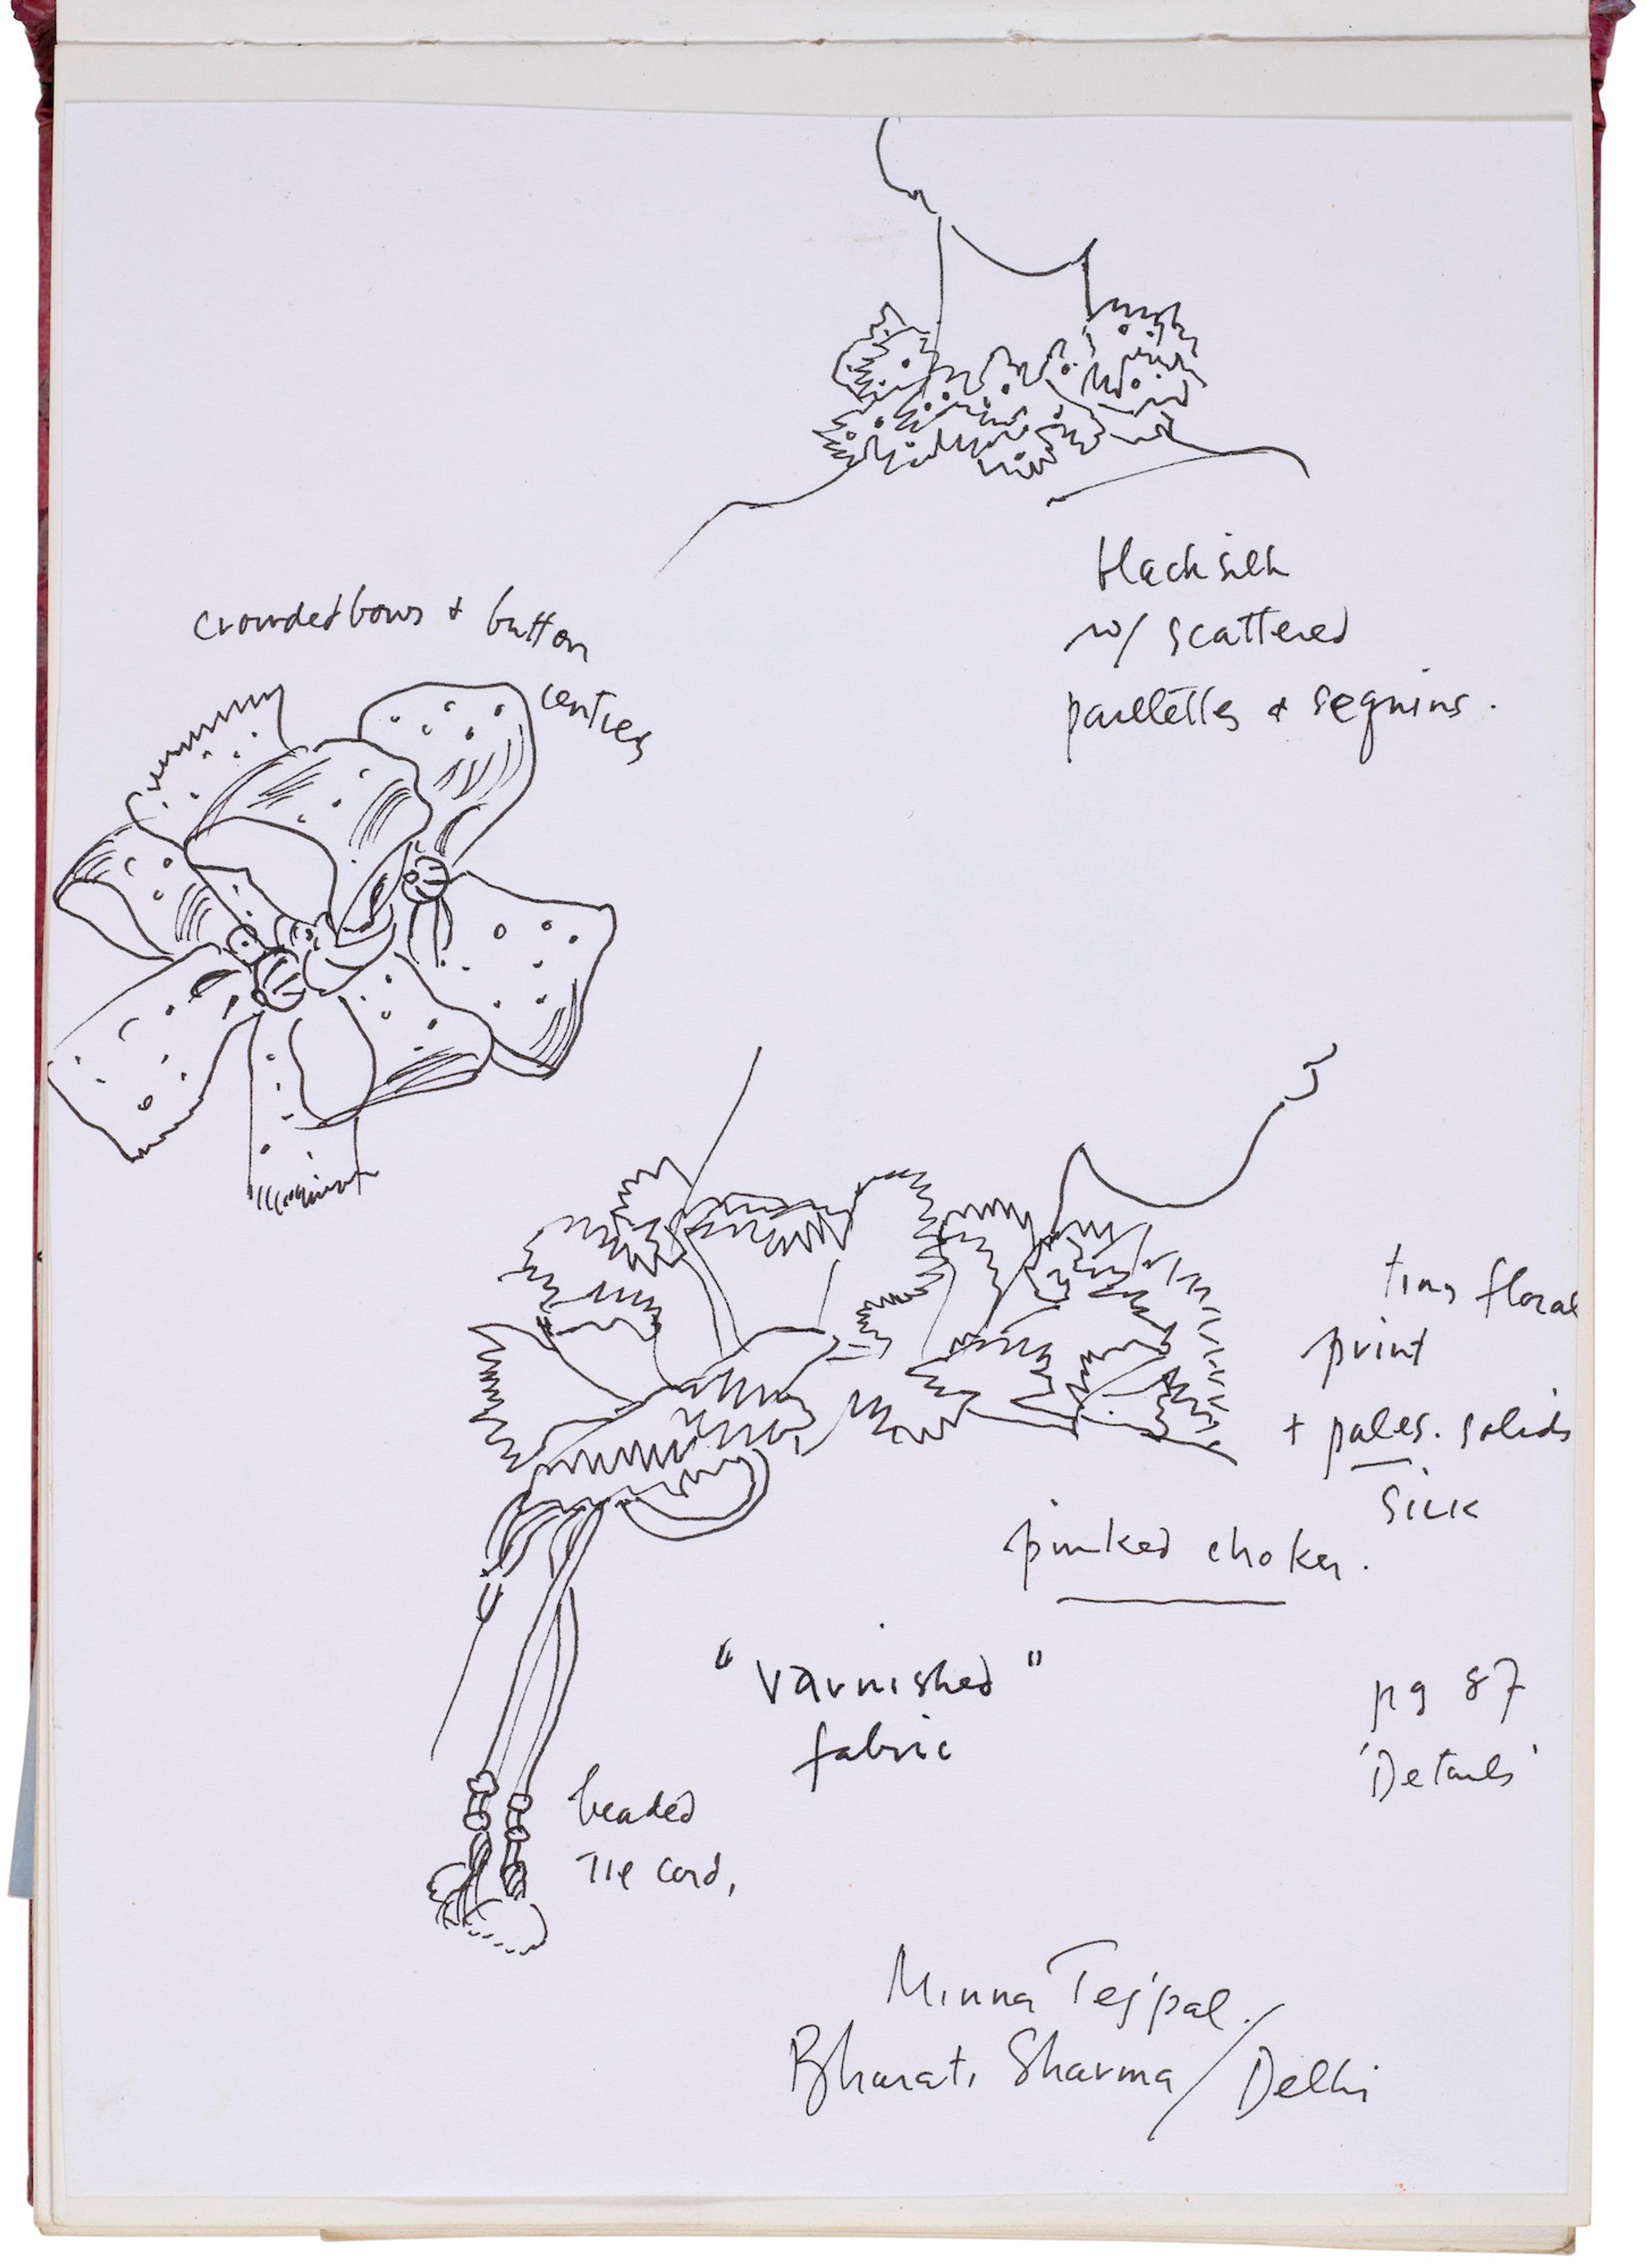 Black silk
w/ scattered
paillettes & sequins.
crowded bows + button
centres
tiny floral
print
+ pales. solids
silk
pinked choker.
"varnished"
fabric
pg 87
'Details'
beaded
Tie cord,
Minna Tejpal.
Bharati Sharma / Delhi